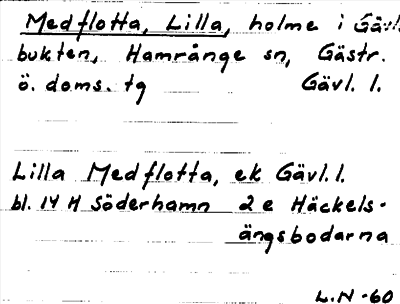 Medflotta, Lilla, holme i Gävl.
bukten, Hamrånge sn, Gästr.
ö. doms. tg Gävl. l.
Lilla Medflotta, ek Gävl. l.
bl. 14 H Söderhamn 2 e Häckels-
ängsbodarna
L.N -60